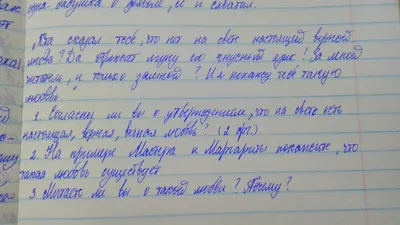 одна девушка о деньге, ее и схватил.
„Кто сказал тебе, что нет на свете настоящей, верной
любви? Да отрежут лгуну его гнусный язык! За мной
читатель, и только за мной? И я покажу тебе такую
любовь"
1. Согласны ли вы с утверждением, что на свете есть
настоящая, верная, вечная любовь? (2 арг.)
2. На примере Мастера и Маргариты покажите, что
такая любовь существует
3. Мечтаете ли вы о такой любви? Почему?